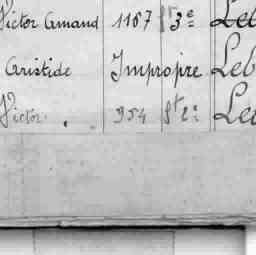 Victor Amand 1167 St 3e Leb
Aristide Impropre Leb
Victor 954 St 2e Leb